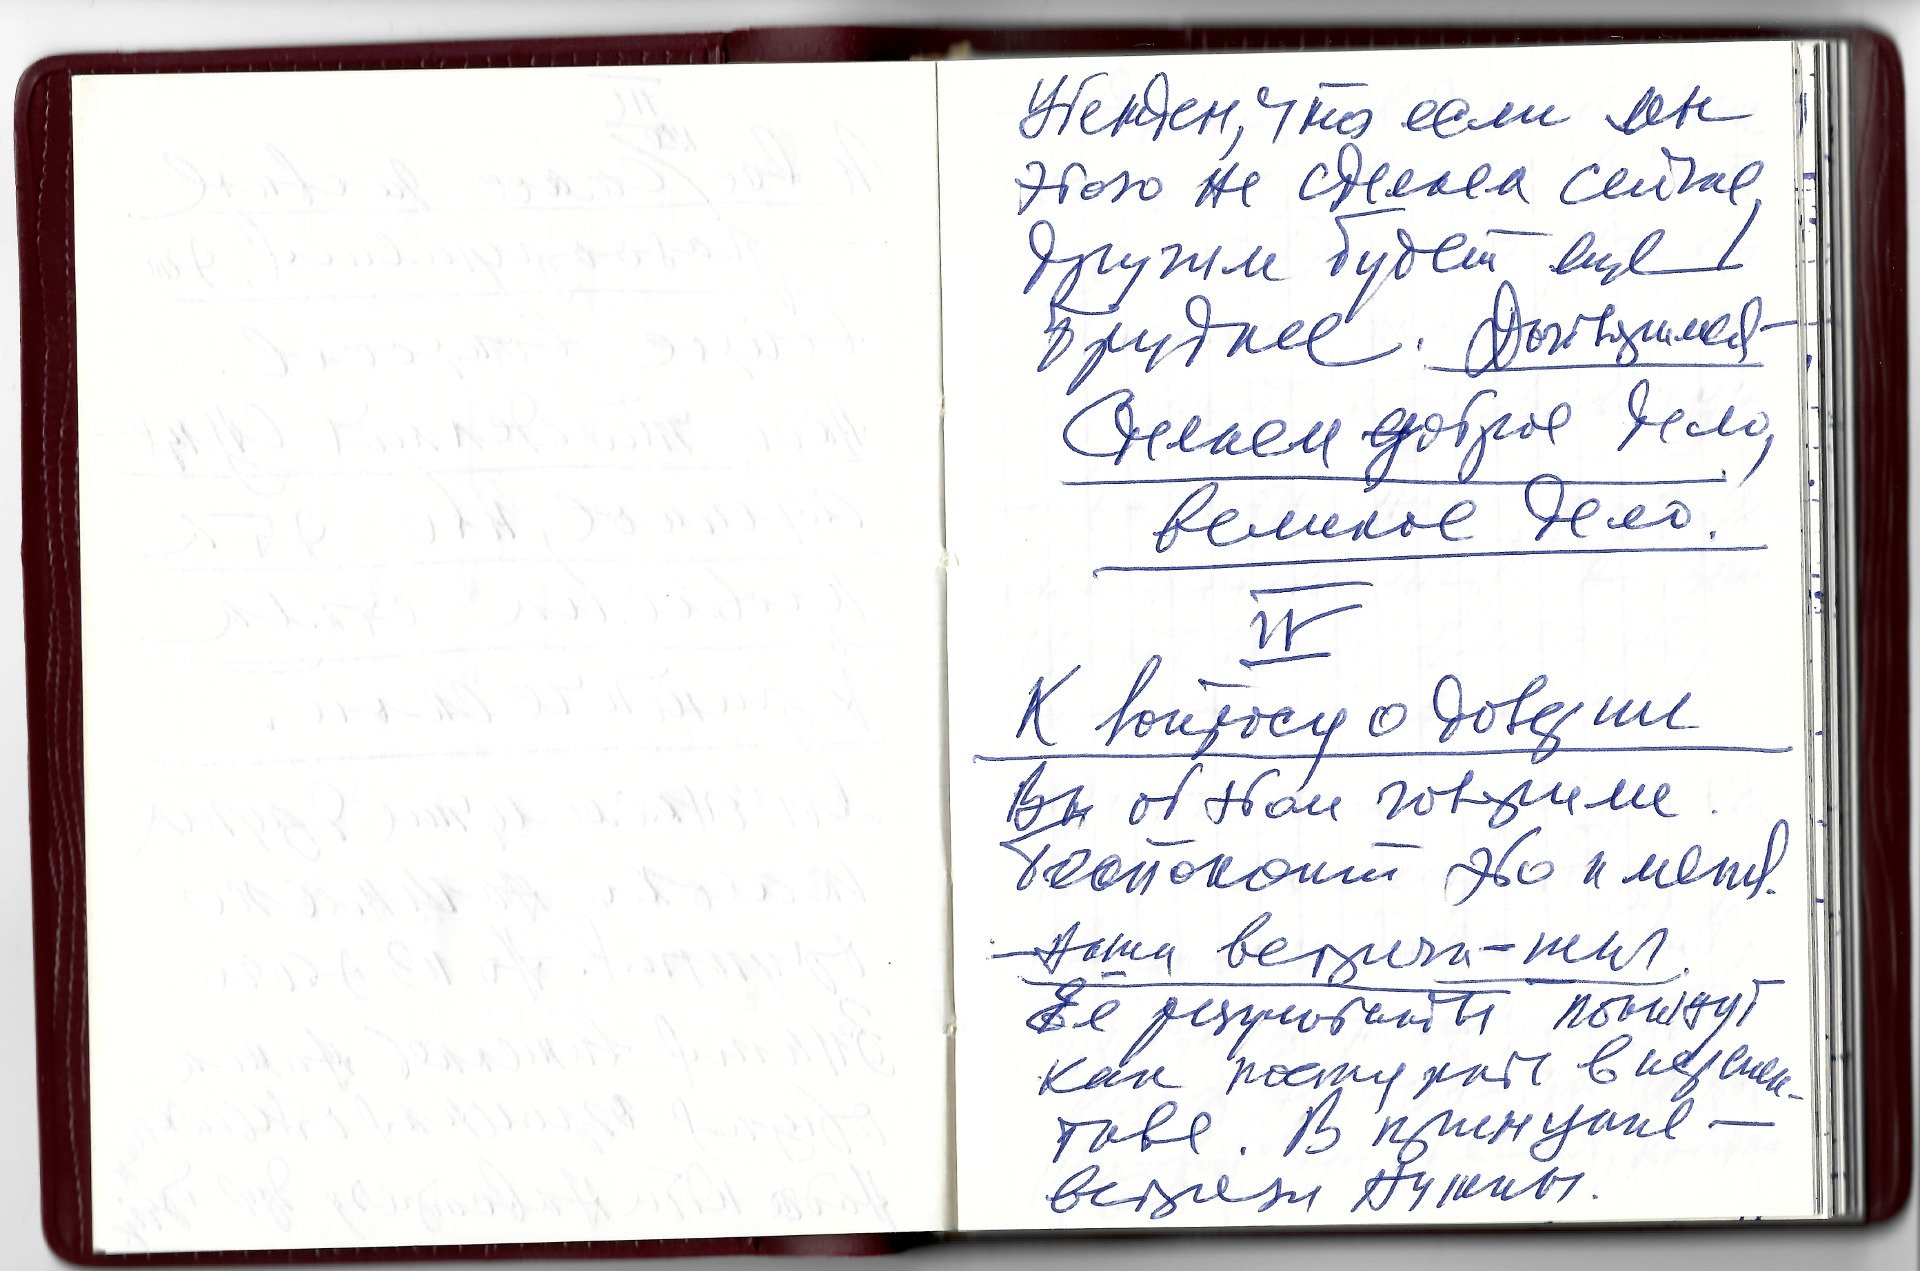 Убежден, что если мы
этого не сделаем сейчас,
другим будет еще
труднее. Договоримся –
Сделаем доброе дело,
великое дело.
IV
К вопросу о доверии
Вы об этом говорили.
Беспокоит это и меня.
– Наша встреча – шаг.
Её результаты покажут
как поступать в перспек-
тиве. В принципе –
встречи нужны.